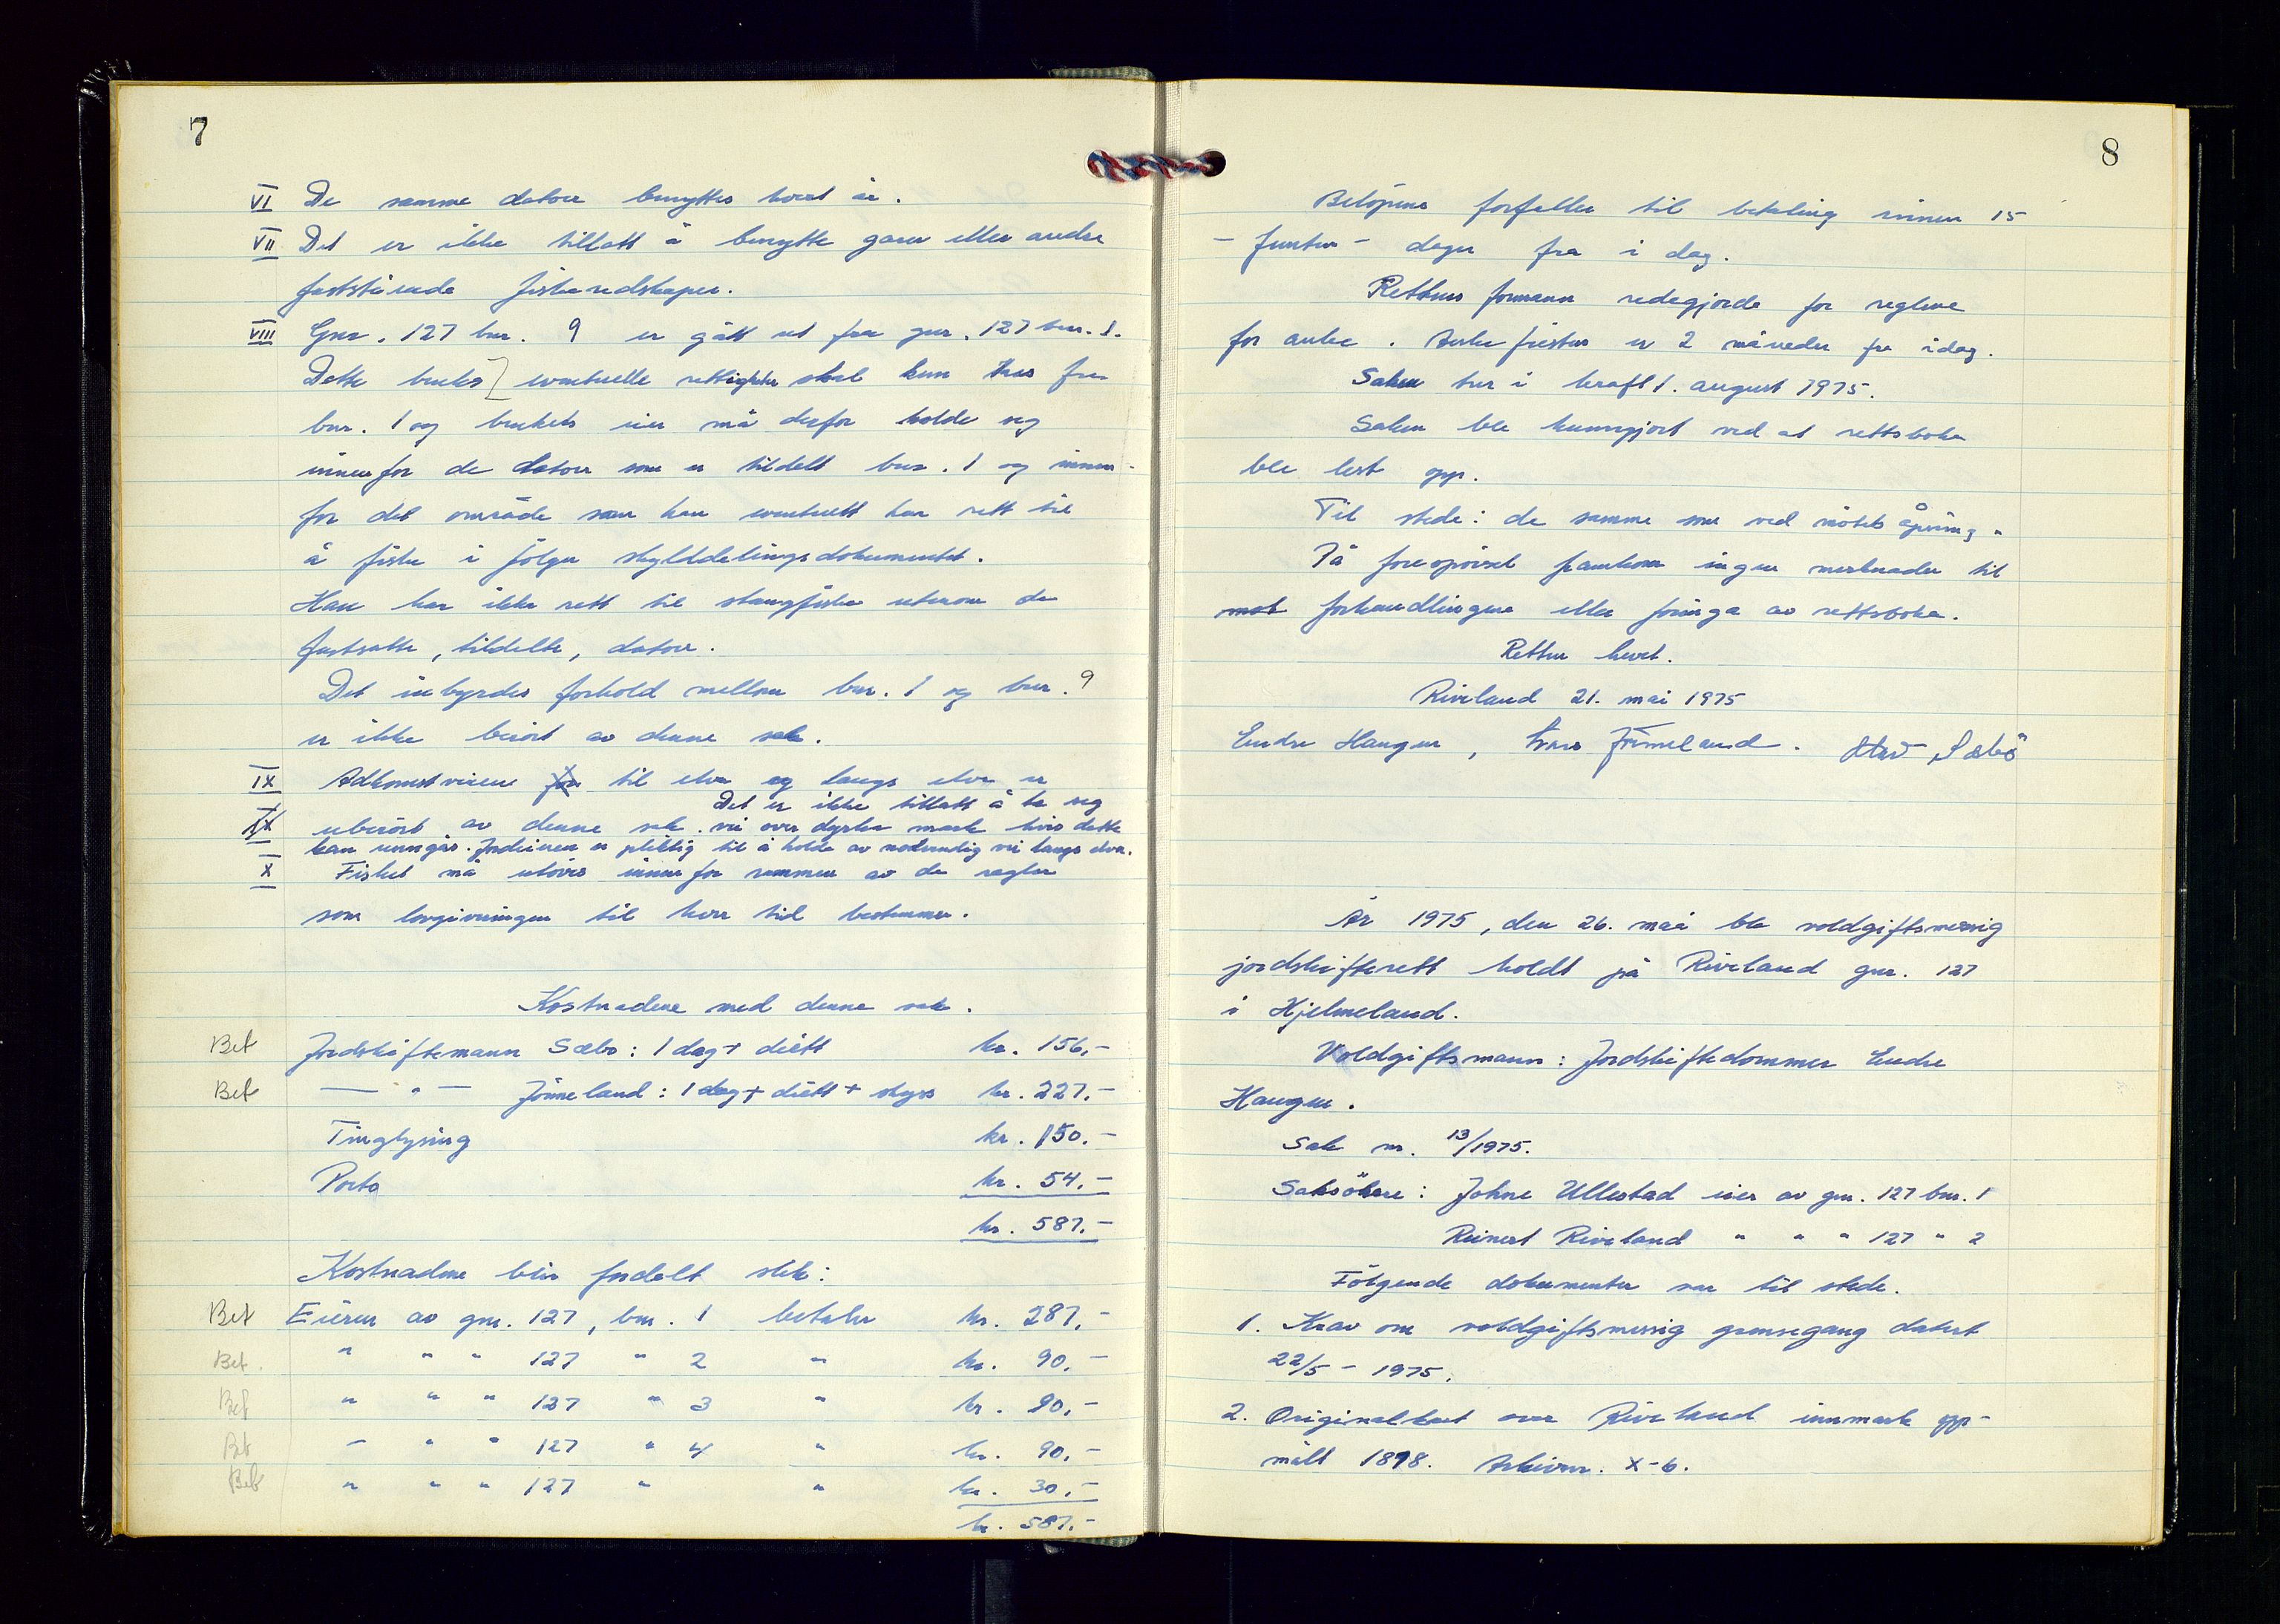 7
VI De samme datoer benyttes hvert år.
VII Det er ikke tillatt å benytte garn eller andre
faststående fiskeredskaper.
VIII Gnr. 127 bnr. 9 er gått ut fra gnr. 127 bnr. 1.
Dette bruks eventuelle rettigheter skal kun tas fra
bnr. 1 og brukets eier må derfor holde seg
innenfor de datoer som er tildelt bnr. 1 og innen-
for det område som han eventuelt har rett til
å fiske i følge skylddelingsdokumentet.
Han har ikke rett til stangfiske utenom de
fastsatte, tildelte, datoer.
Det innbyrdes forhold mellom bnr. 1 og bnr. 9
er ikke berört av denne sak.
IX Adkomstveiene for til elva og langs elva er
Det er ikke tillatt å ta seg
IX uberört av denne sak. vei over dyrka mark hvis dette
kan unngås. Jordeieren er pliktig til å holde av nødvendig vei langs elva.
X Fisket må utöves innenfor rammen av de regler
som lovgivningen til hver tid bestemmer.
Kostnadene med denne sak.
Bet Jordskiftemann Sæbø: 1 dag + diett kr. 156,-
Bet — " — Jönneland: 1 dag + diett + skyss kr. 227,-
Tinglysing kr. 150,-
Porto kr. 54,-
kr. 587,-
Kostnadene blir fordelt slik:
Bet Eieren av gnr. 127, bnr. 1 betaler kr. 287,-
Bet. " " " 127 " 2 " kr. 90,-
Bet " " " 127 " 3 " kr. 90,-
Bet " " " 127 " 4 " kr. 90,-
Bet " " " 127 " " kr. 30,-
kr. 587,-
8
Belöpene forfaller til betaling innen 15
- femten - dager fra i dag.
Rettens formann redegjorde for reglene
for anke. Ankefristen er 2 måneder fra idag.
Saken trer i kraft 1. august 1975.
Saken ble kunngjort ved at rettsboka
ble lest opp.
Til stede: de samme som ved mötets åpning.
På forespörsel framkom ingen merknader til
mot forhandlingene eller föringa av rettsboka.
Retten hevet.
Riveland 21. mai 1975
Endre Haugen, Jönneland. Sæbö
År 1975, den 26. mai ble voldgiftsmessig
jordskifterett holdt på Riveland gnr. 127
i Hjelmeland.
Voldgiftsmann: Jordskiftedommer Endre
Haugen.
Sak nr. 13/1975.
Saksökere: Johne Ullestad eier av gnr. 127 bnr. 1
Reinert Riveland " " " 127 " 2
Fölgende dokumenter var til stede.
1. Krav om voldgiftsmessig grensegang datert
22/5 - 1975.
2. Originalkart over Riveland innmark opp-
målt 1898. Arkivnr. X-6.